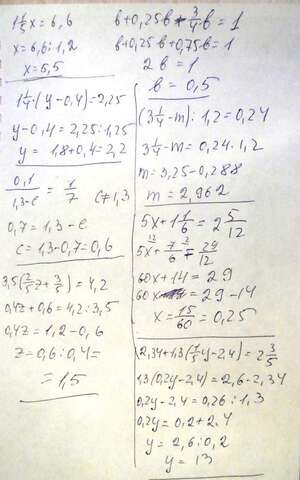 1 1/5 x = 6,6
x = 6,6 : 1,2
x = 5,5
1 1/4 · (y - 0,4) = 2,25
y - 0,4 = 2,25 : 1,25
y = 1,8 + 0,4 = 2,2
0,1/(1,3 - c) = 1/7 c ≠ 1,3
0,7 = 1,3 - c
c = 1,3 - 0,7 = 0,6
3,5(2/5 z + 3/5) = 4,2
0,4z + 0,6 = 4,2 : 3,5
0,4z = 1,2 - 0,6
z = 0,6 : 0,4 =
= 1,5
b + 0,25b + 3/4 b = 1
b + 0,25b + 0,75b = 1
2b = 1
b = 0,5
(3 1/4 - m) : 1,2 = 0,24
3 1/4 - m = 0,24 · 1,2
m = 3,25 - 0,288
m = 2,962
5x + 1 1/6 = 2 5/12
5x + 7/6 = 29/12
60x + 14 = 29
60x = 29 - 14
x = 15/60 = 0,25
2,34 + 1,3(1/5 y - 2,4) = 2 3/5
1,3(0,2y - 2,4) = 2,6 - 2,34
0,2y - 2,4 = 0,26 : 1,3
0,2y = 0,2 + 2,4
y = 2,6 : 0,2
y = 13